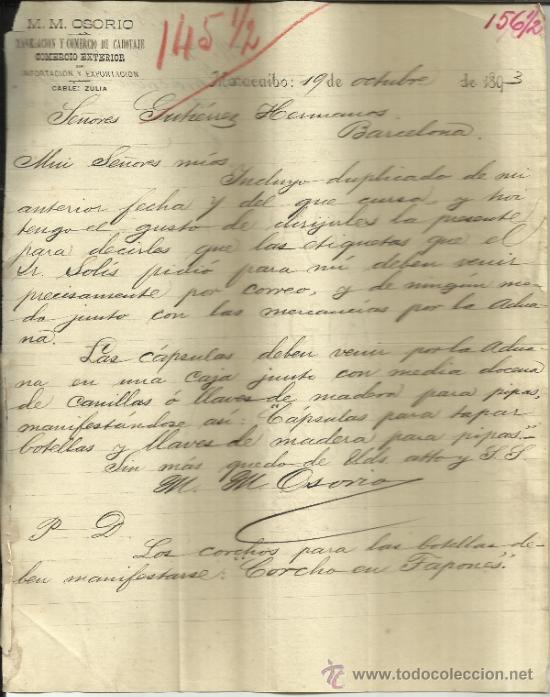 M. M. OSORIO
NAVEGACION Y COMERCIO DE CABOTAJE
COMERCIO EXTERIOR
IMPORTACION Y EXPORTACION
CABLE: ZULIA
145 1/2
156 1/2
Maracaibo: 19 de octubre de 1893
Señores Gutiérrez Hermanos.
Barcelona.
Mui Señores mios
Incluyo duplicado de mi
anterior fecha y del que cursa, y hoi
tengo el gusto de dirijirles la presente
para decirles que las etiquetas que el
Sr. Solís pidió para mí deben venir
precisamente por correo, y de ningún mo-
do junto con las mercancías por la Adua-
na.
Las cápsulas deben venir por la Adua-
na en una caja junto con media docena
de canillas ó llaves de madera para pipas,
manifestándose así: "Cápsulas para tapar
botellas y llaves de madera para pipas."
Sin mas quedo de Uds. atto y S. S.
M. M. Osorio
P D.
Los corchos para las botellas de-
ben manifestarse: "Corcho en Tapones."
www.todocoleccion.net